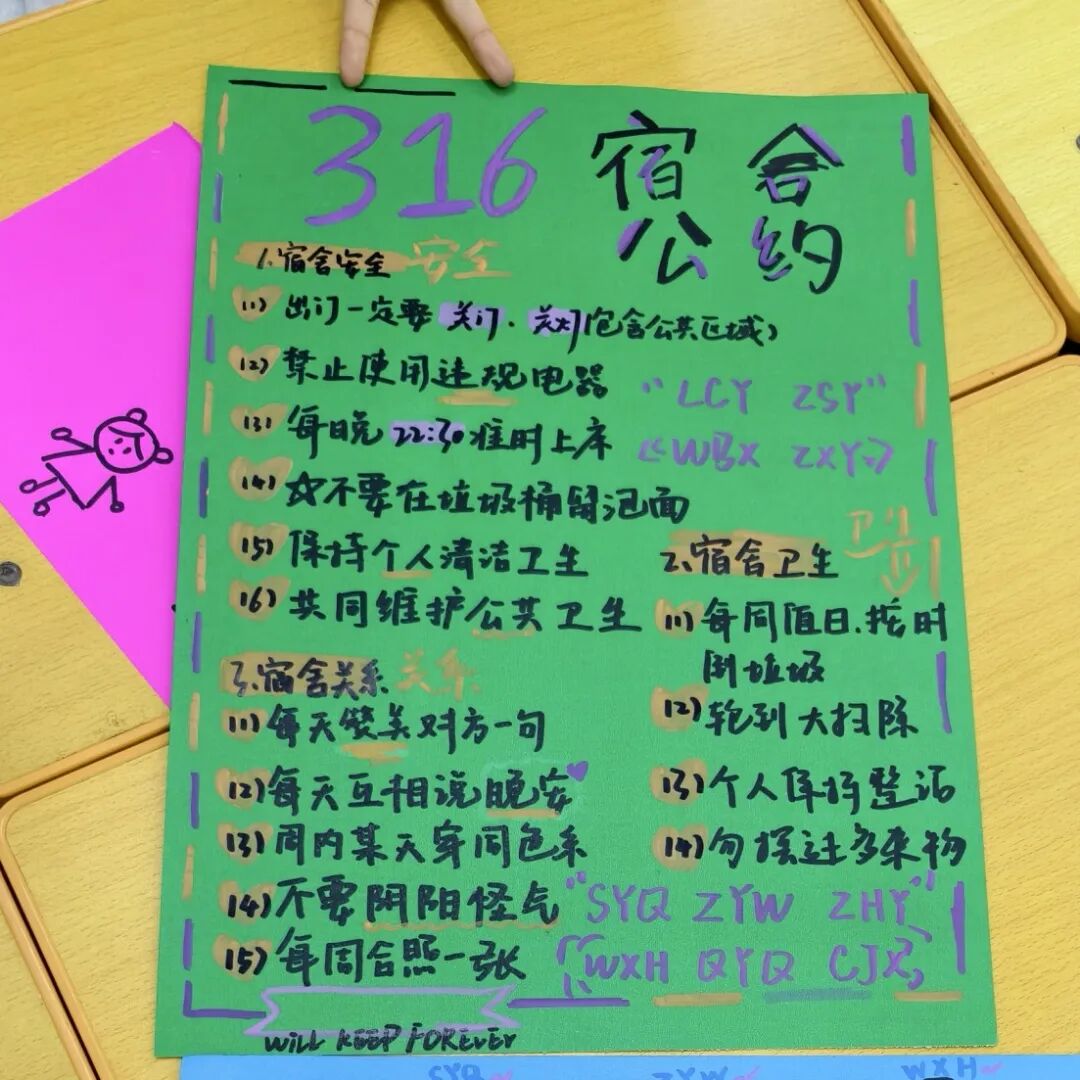 316 宿舍
公约
1.宿舍安全 安全
(1) 出门一定要关门、关灯(包含公共区域)
(2) 禁止使用违规电器
(3) 每日晚22:30准时上床
(4) ☆不要在垃圾桶留泡面
(5) 保持个人清洁卫生
(6) 共同维护公共卫生
"LCY ZSY"
《WBX ZXY》
2.宿舍卫生 卫生
(1) 每周值日.按时
倒垃圾
(2) 轮到大扫除
(3) 个人保持整洁
(4) 勿摆过多杂物
3.宿舍关系 关系
(1) 每天赞美对方一句
(2) 每天互相说晚安
(3) 周内某天穿同色系
(4) 不要阴阳怪气
(5) 每周合照一张
"SYQ ZYW ZHY"
WXH QYQ CJX
WILL KEEP FOREVER
SYQ ZYW WXH